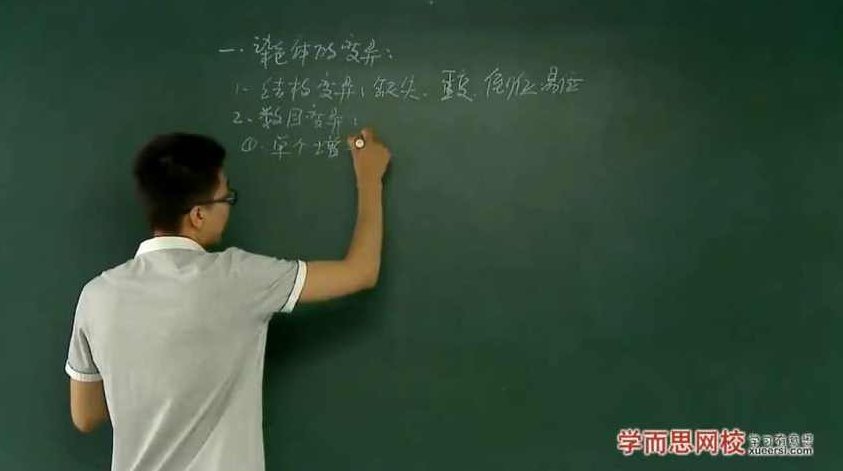 一、染色体的变异：
1、结构变异：缺失、重复、倒位、易位
2、数目变异：
①、单个增
学而思网校 学习有意思
xueersi.com